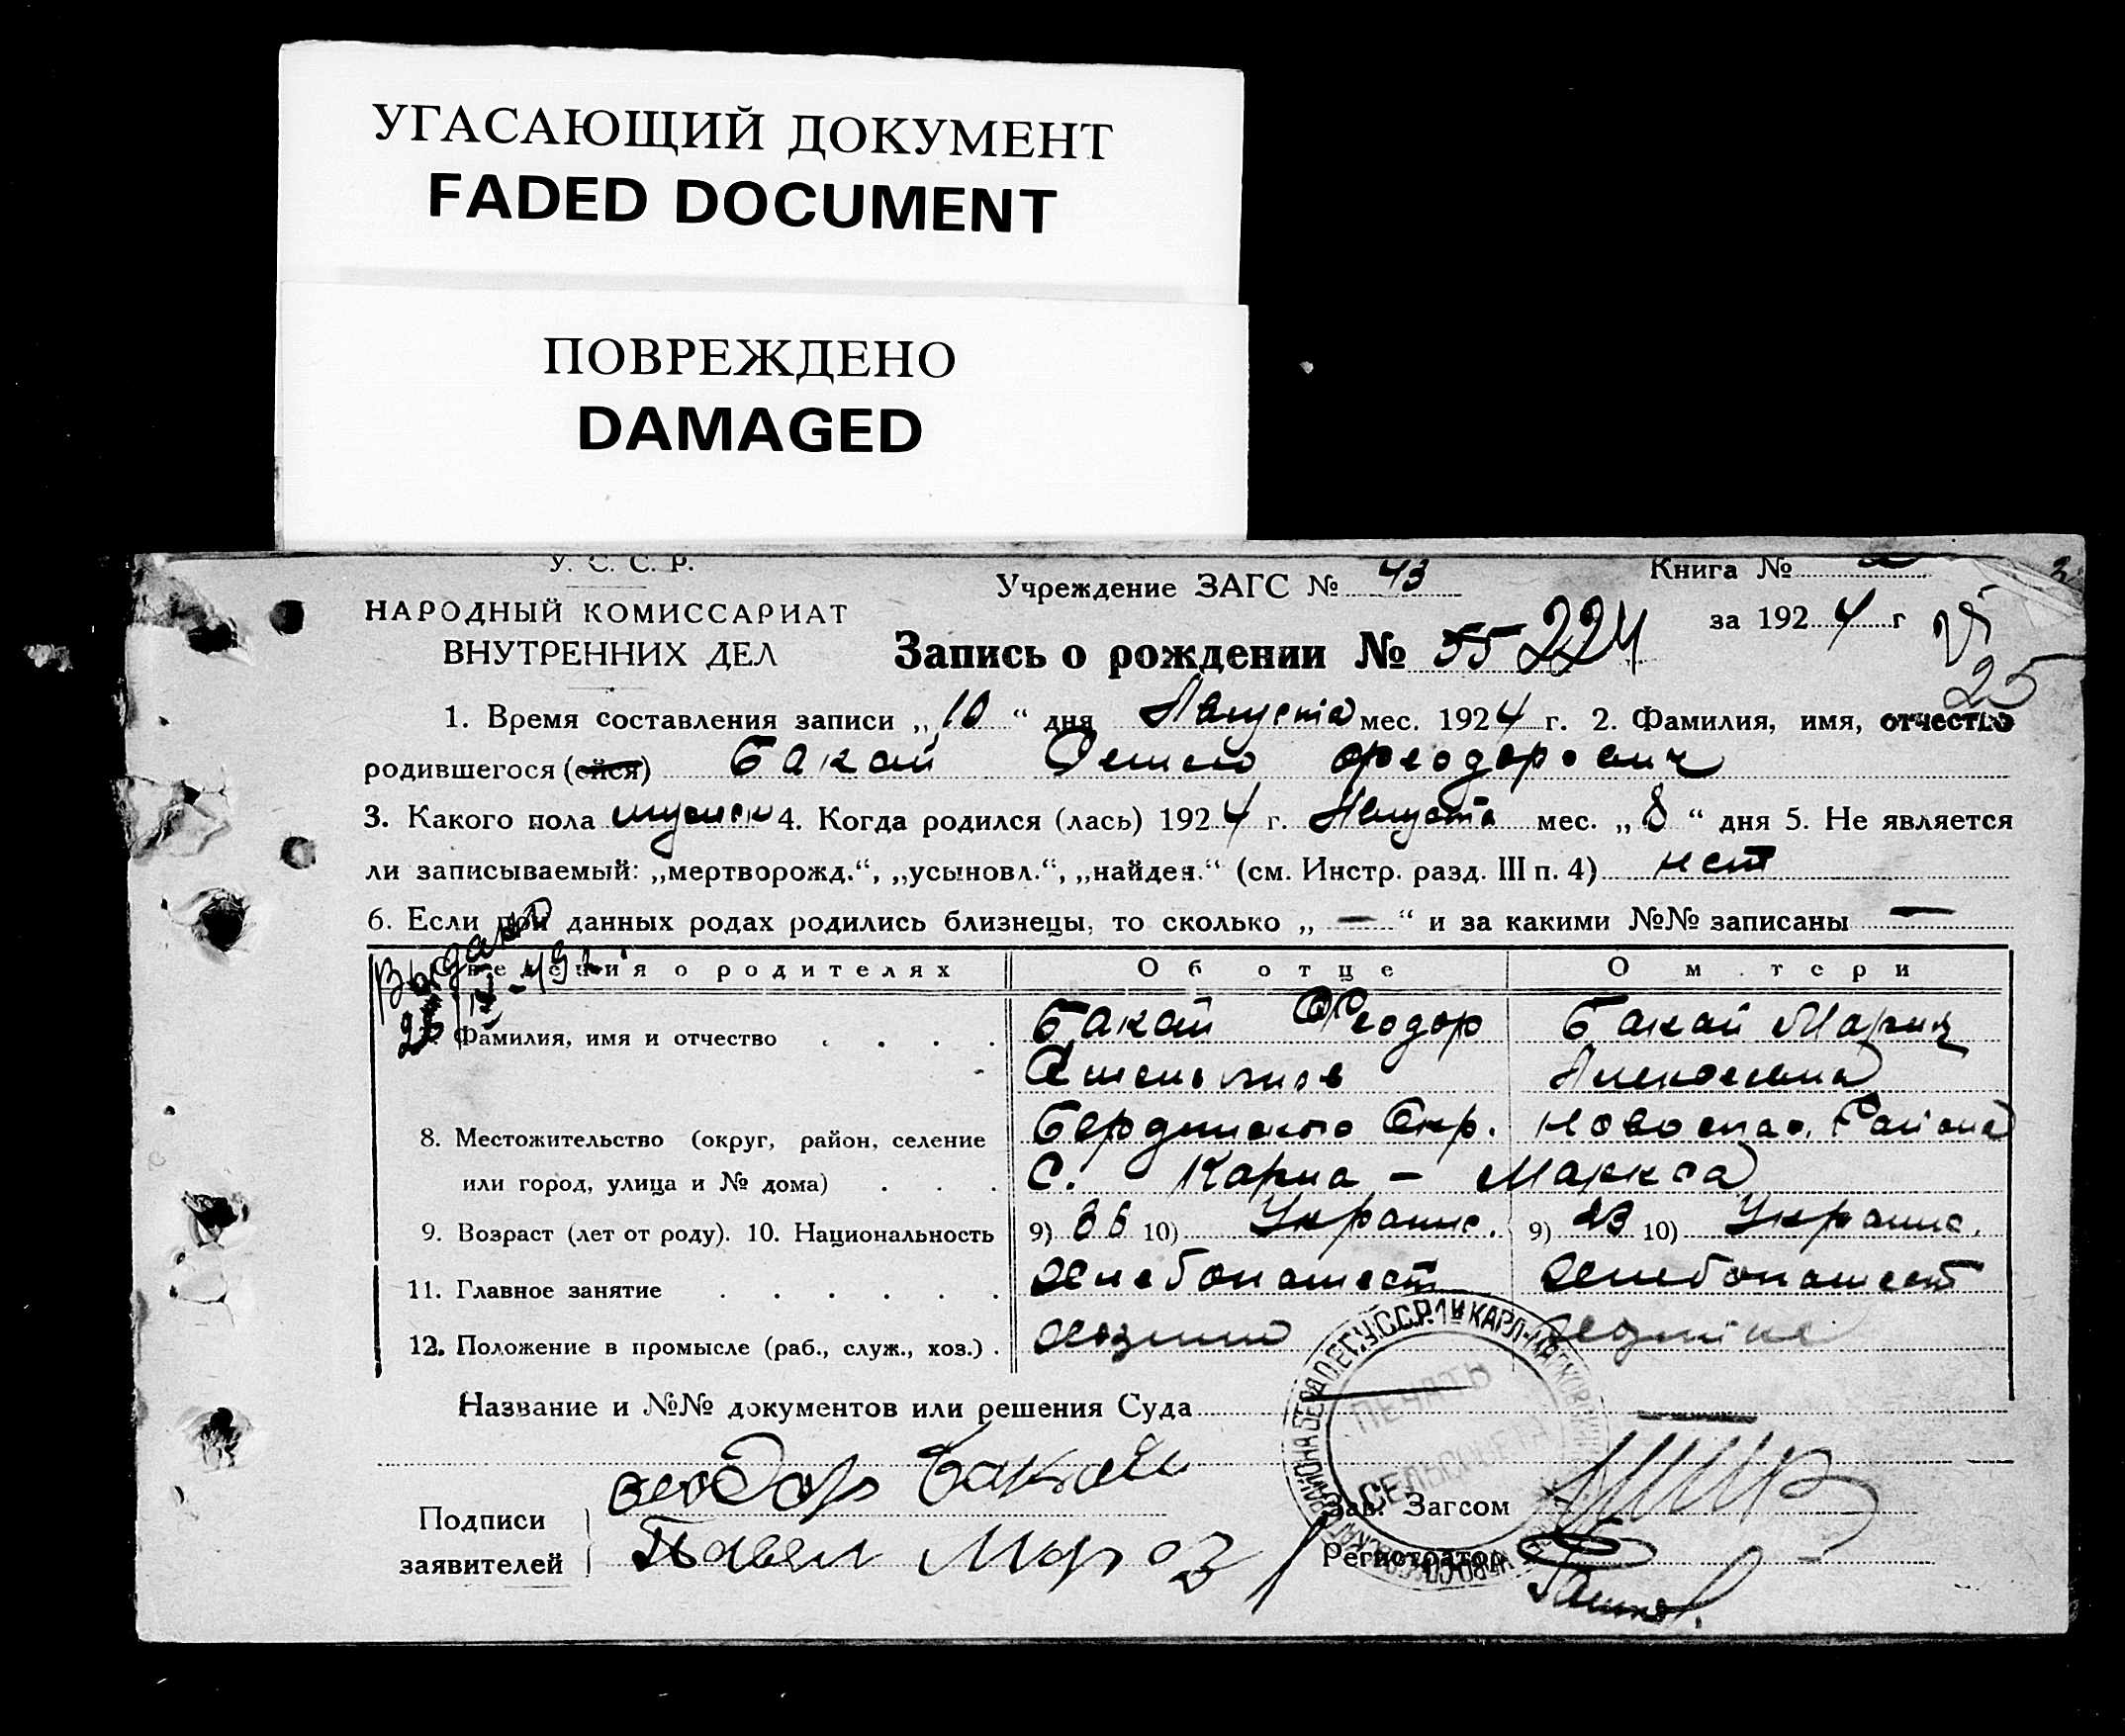 УГАСАЮЩИЙ ДОКУМЕНТ
FADED DOCUMENT
ПОВРЕЖДЕНО
DAMAGED
У. С. С. Р.
НАРОДНЫЙ КОМИССАРИАТ
ВНУТРЕННИХ ДЕЛ
Учреждение ЗАГС № 43
Книга №
за 1924 г
Запись о рождении № 55 224
25
1. Время составления записи „10“ дня Августа мес. 1924 г. 2. Фамилия, имя, отчество
родившегося (ейся) Бакай Феодорович
3. Какого пола мужск 4. Когда родился (лась) 1924 г. Августа мес. „8“ дня 5. Не является
ли записываемый: „мертворожд.“, „усыновл.“, „найден.“ (см. Инстр. разд. III п. 4) нет
6. Если при данных родах родились близнецы, то сколько „ — “ и за какими №№ записаны —
Сведения о родителях Об отце О матери
Фамилия, имя и отчество Бакай Феодор Бакай Мария
Алексеевна
8. Местожительство (округ, район, селение Бердянского Окр. Новоспас. Района
или город, улица и № дома) С. Карла - Маркса
9. Возраст (лет от роду). 10. Национальность 9) 10) Украине. 9) 23 10) Украине.
11. Главное занятие Хлебопашест Хлебопашест
12. Положение в промысле (раб., служ., хоз.)
Название и №№ документов или решения Суда
ПЕЧАТЬ
СЕЛЬСОВЕТА
Подписи
заявителей
Феодор Бакай
Павел Мороз
Зав. Загсом
Регистратор